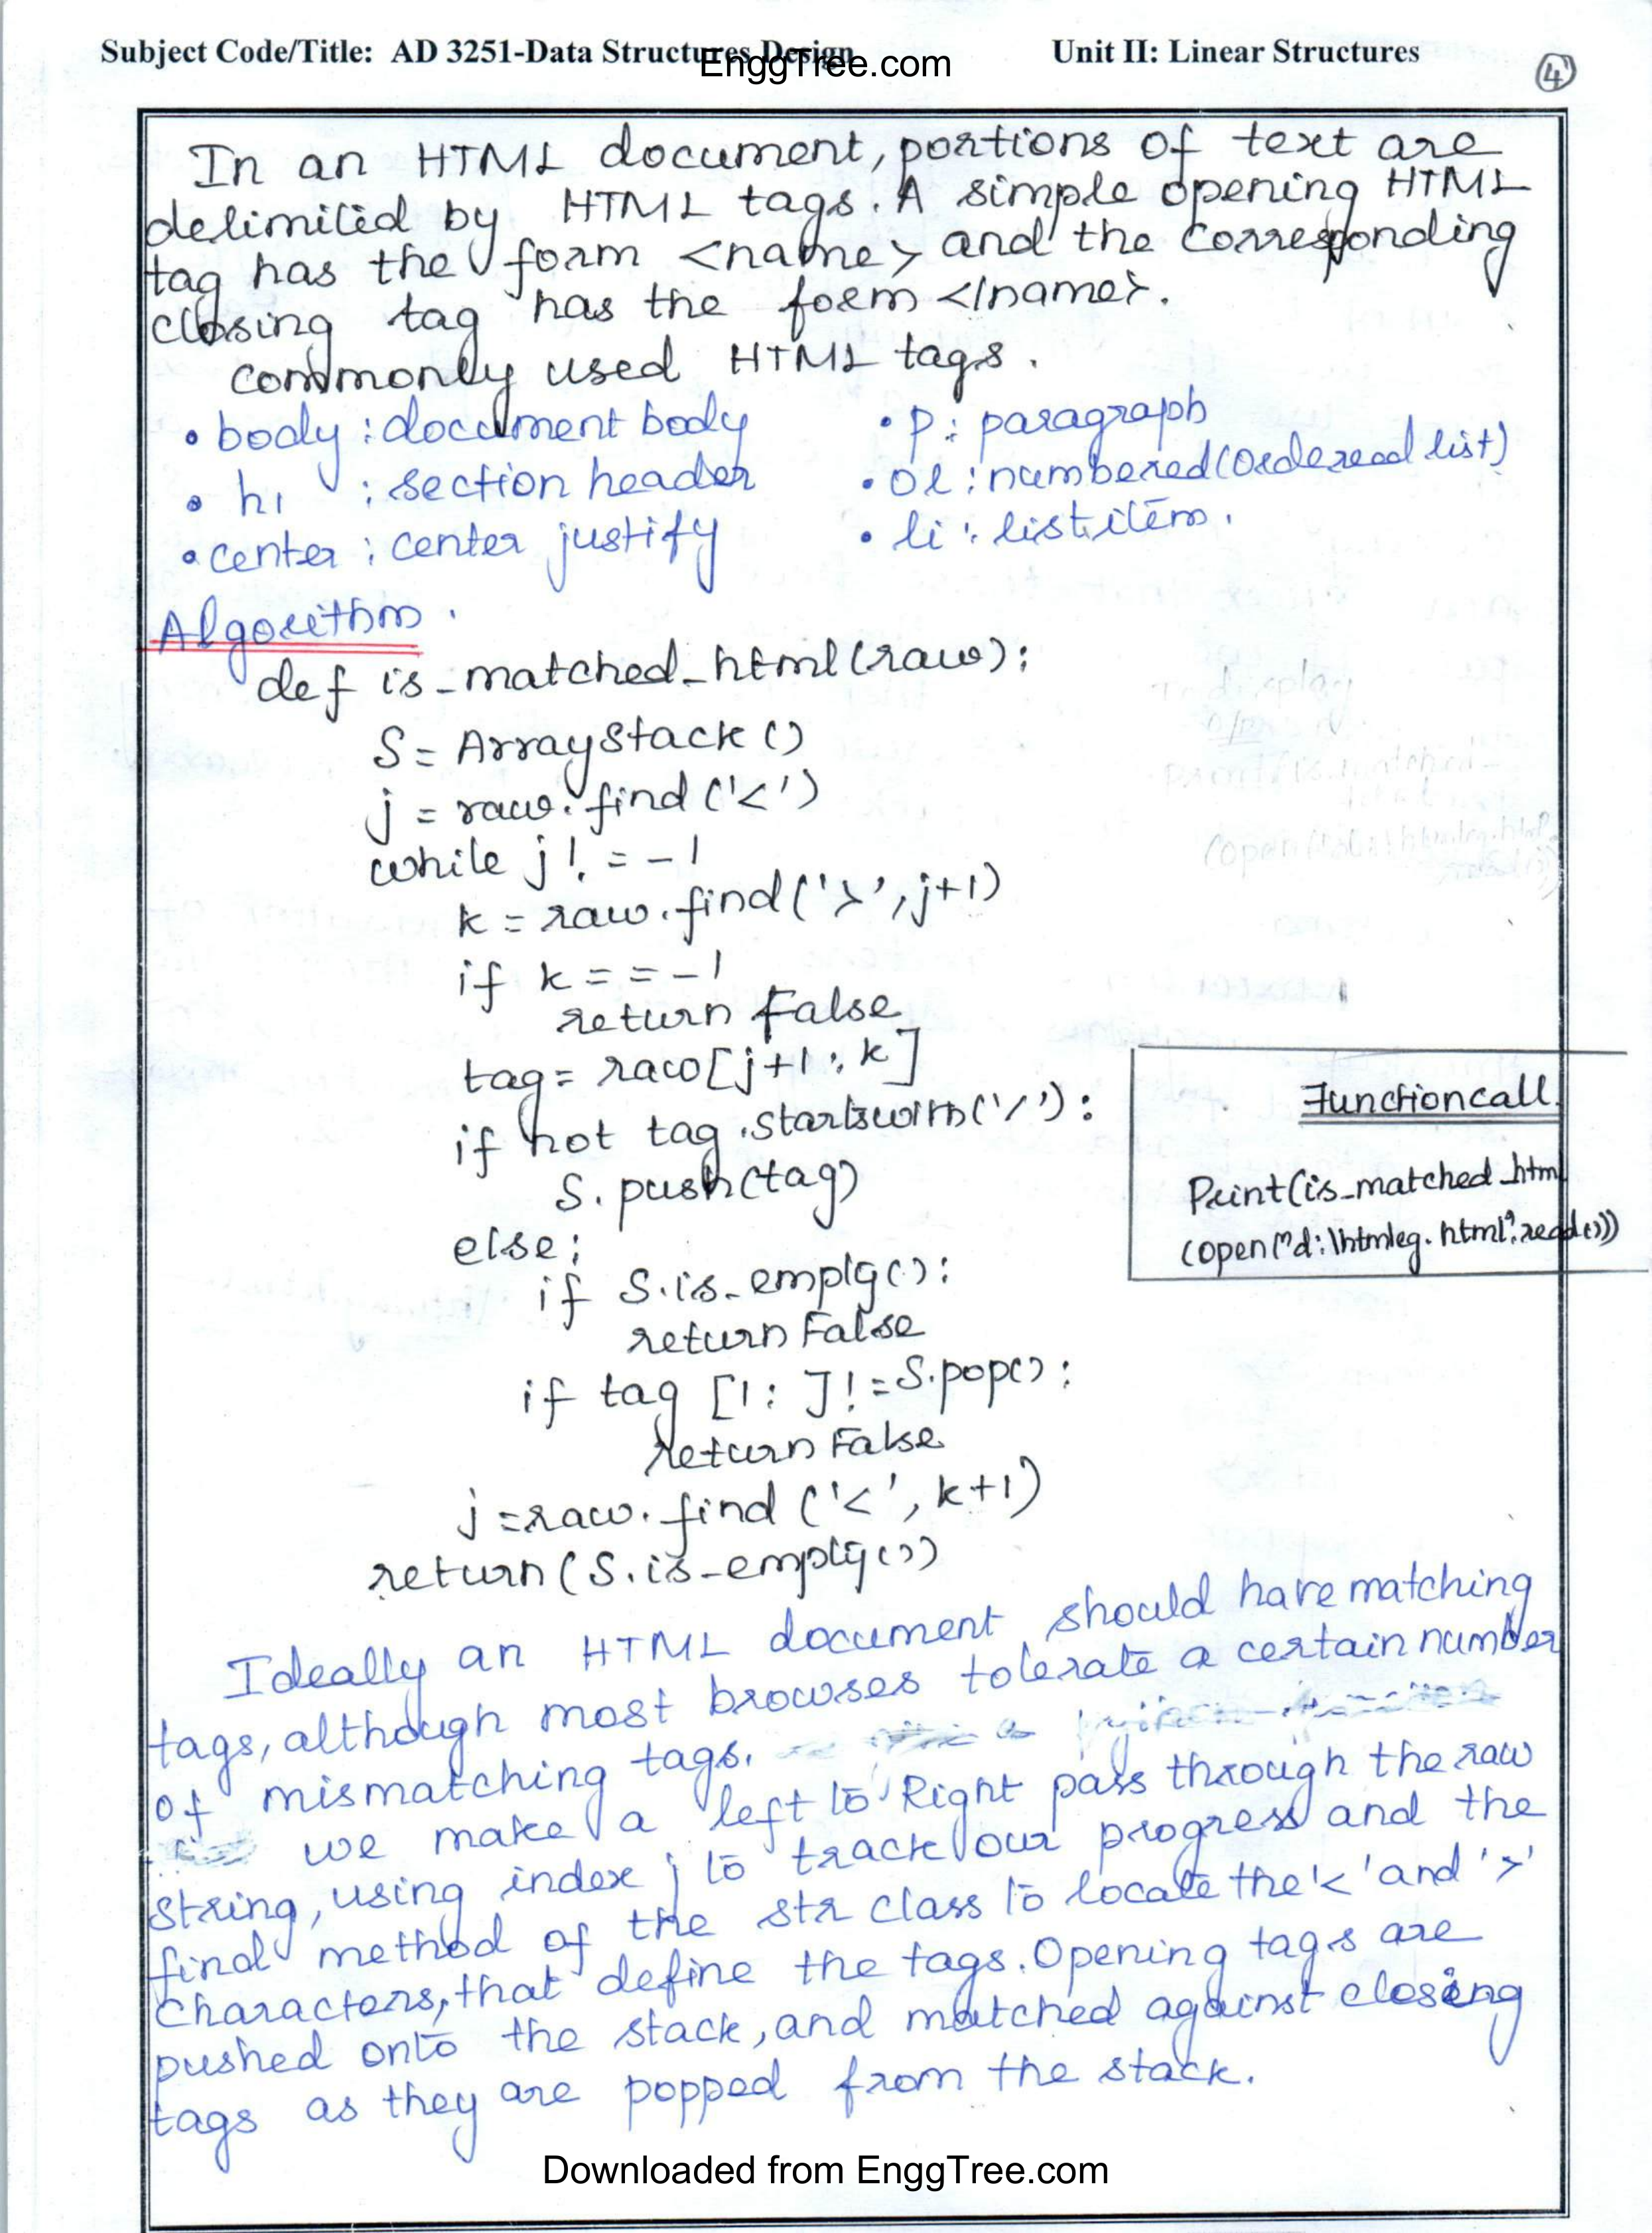 Subject Code/Title: AD 3251-Data Structures Design Unit II: Linear Structures
EnggTree.com
4
In an HTML document, portions of text are
delimited by HTML tags. A simple opening HTML
tag has the form <name> and the corresponding
closing tag has the form </name>.
commonly used HTML tags.
• body : document body • p : paragraph
• h1 : section header • ol : numbered (Ordereed list)
• center : center justify • li : list item.
Algorithm.
def is_matched_html(raw):
S = ArrayStack ()
j = raw.find('<')
while j != -1
k = raw.find('>', j+1)
if k == -1
return False
tag = raw[j+1 : k]
if not tag.startswith('/'):
S.push(tag)
else:
if S.is_empty():
return False
if tag [1: ] != S.pop():
return False
j = raw.find ('<', k+1)
return (S.is_empty())
Function call.
Print(is_matched_htm
(open("d:\htmleg.html".read()))
Ideally an HTML document should have matching
tags, although most browses tolerate a certain number
of mismatching tags.
we make a left to Right pass through the raw
string, using index j to track our progress and the
find method of the str class to locate the '<' and '>'
characters, that define the tags. Opening tags are
pushed onto the stack, and matched against closing
tags as they are popped from the stack.
Downloaded from EnggTree.com